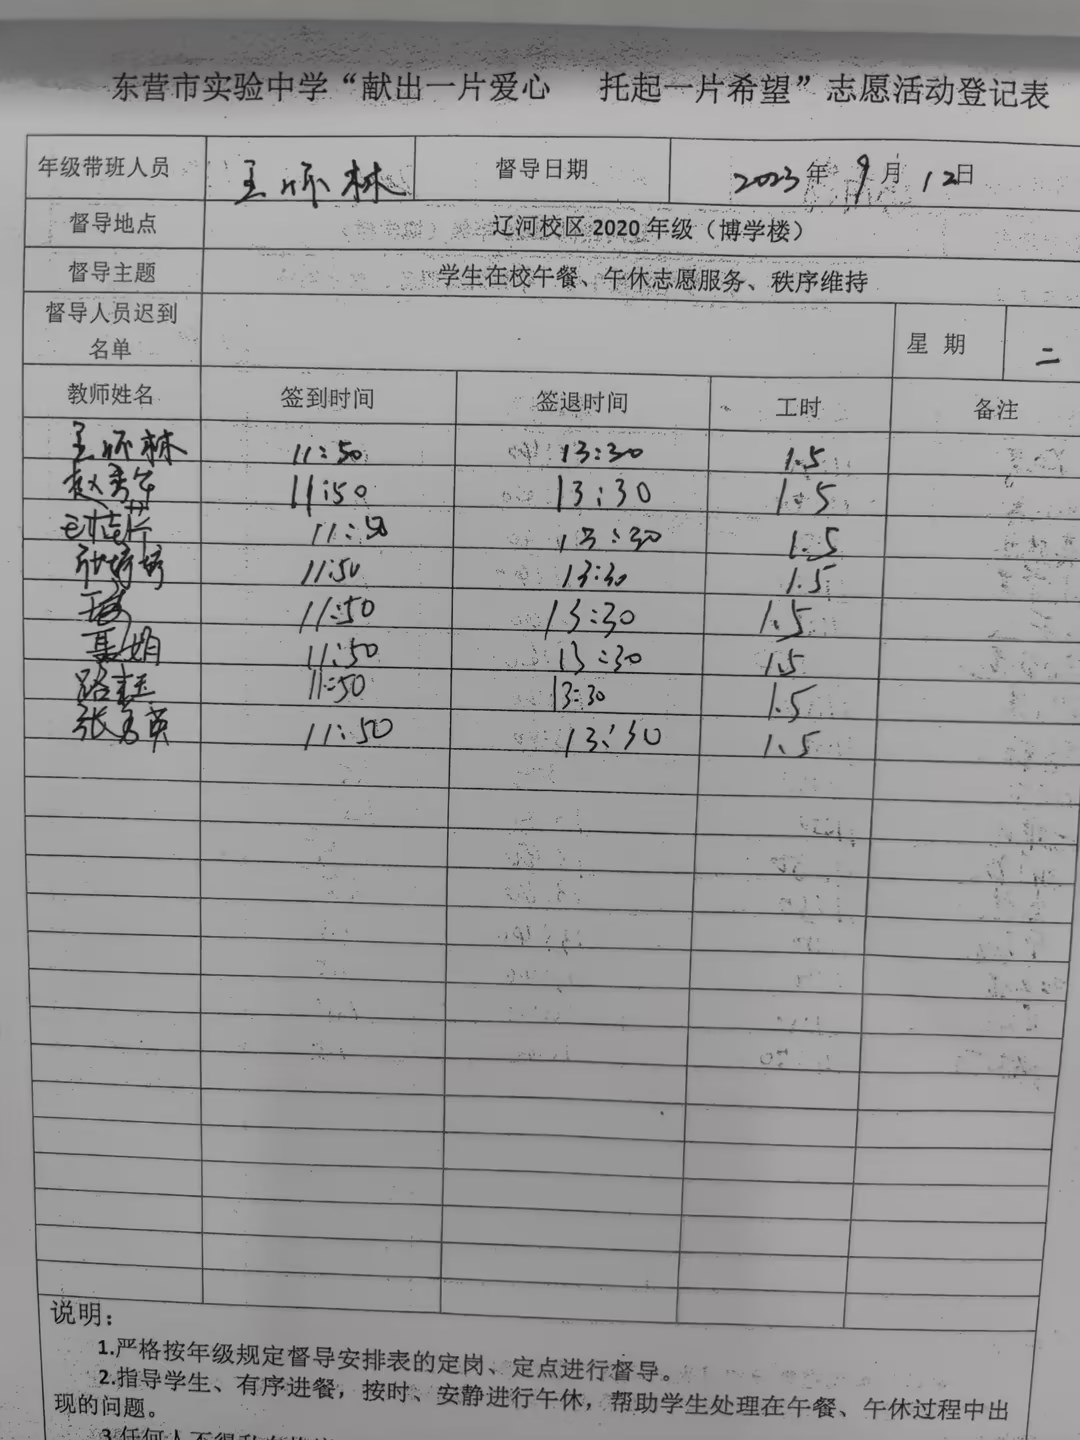 东营市实验中学“献出一片爱心 托起一片希望”志愿活动登记表
年级带班人员 王怀林 督导日期 2023年9月12日
督导地点 辽河校区2020年级（博学楼）
督导主题 学生在校午餐、午休志愿服务、秩序维持
督导人员迟到
名单 星 期 二
教师姓名 签到时间 签退时间 工时 备注
王怀林 11:50 13:30 1.5
赵秀 11:50 13:30 1.5
11:50 13:30 1.5
张婷婷 11:50 13:30 1.5
11:50 13:30 1.5
聂娟 11:50 13:30 1.5
路 11:50 13:30 1.5
张秀英 11:50 13:30 1.5
说明：
1.严格按年级规定督导安排表的定岗、定点进行督导。
2.指导学生、有序进餐，按时、安静进行午休，帮助学生处理在午餐、午休过程中出
现的问题。
3.任何人不得